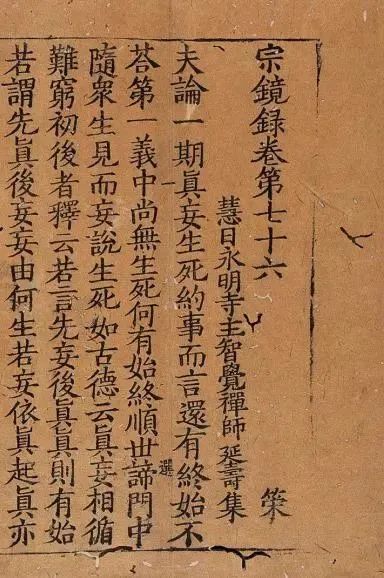 宗鏡録卷第七十六 策
慧日永明寺主智覺禪師延壽集
夫論一期真妄生死約事而言還有終始不
荅第一義中尚無生死何有始終順世諦門中
隨衆生見而妄說生死如古德云真妄相循
難窮初後者釋云若言先妄後真真則有始
若謂先真後妄妄由何生若妄依真起真亦